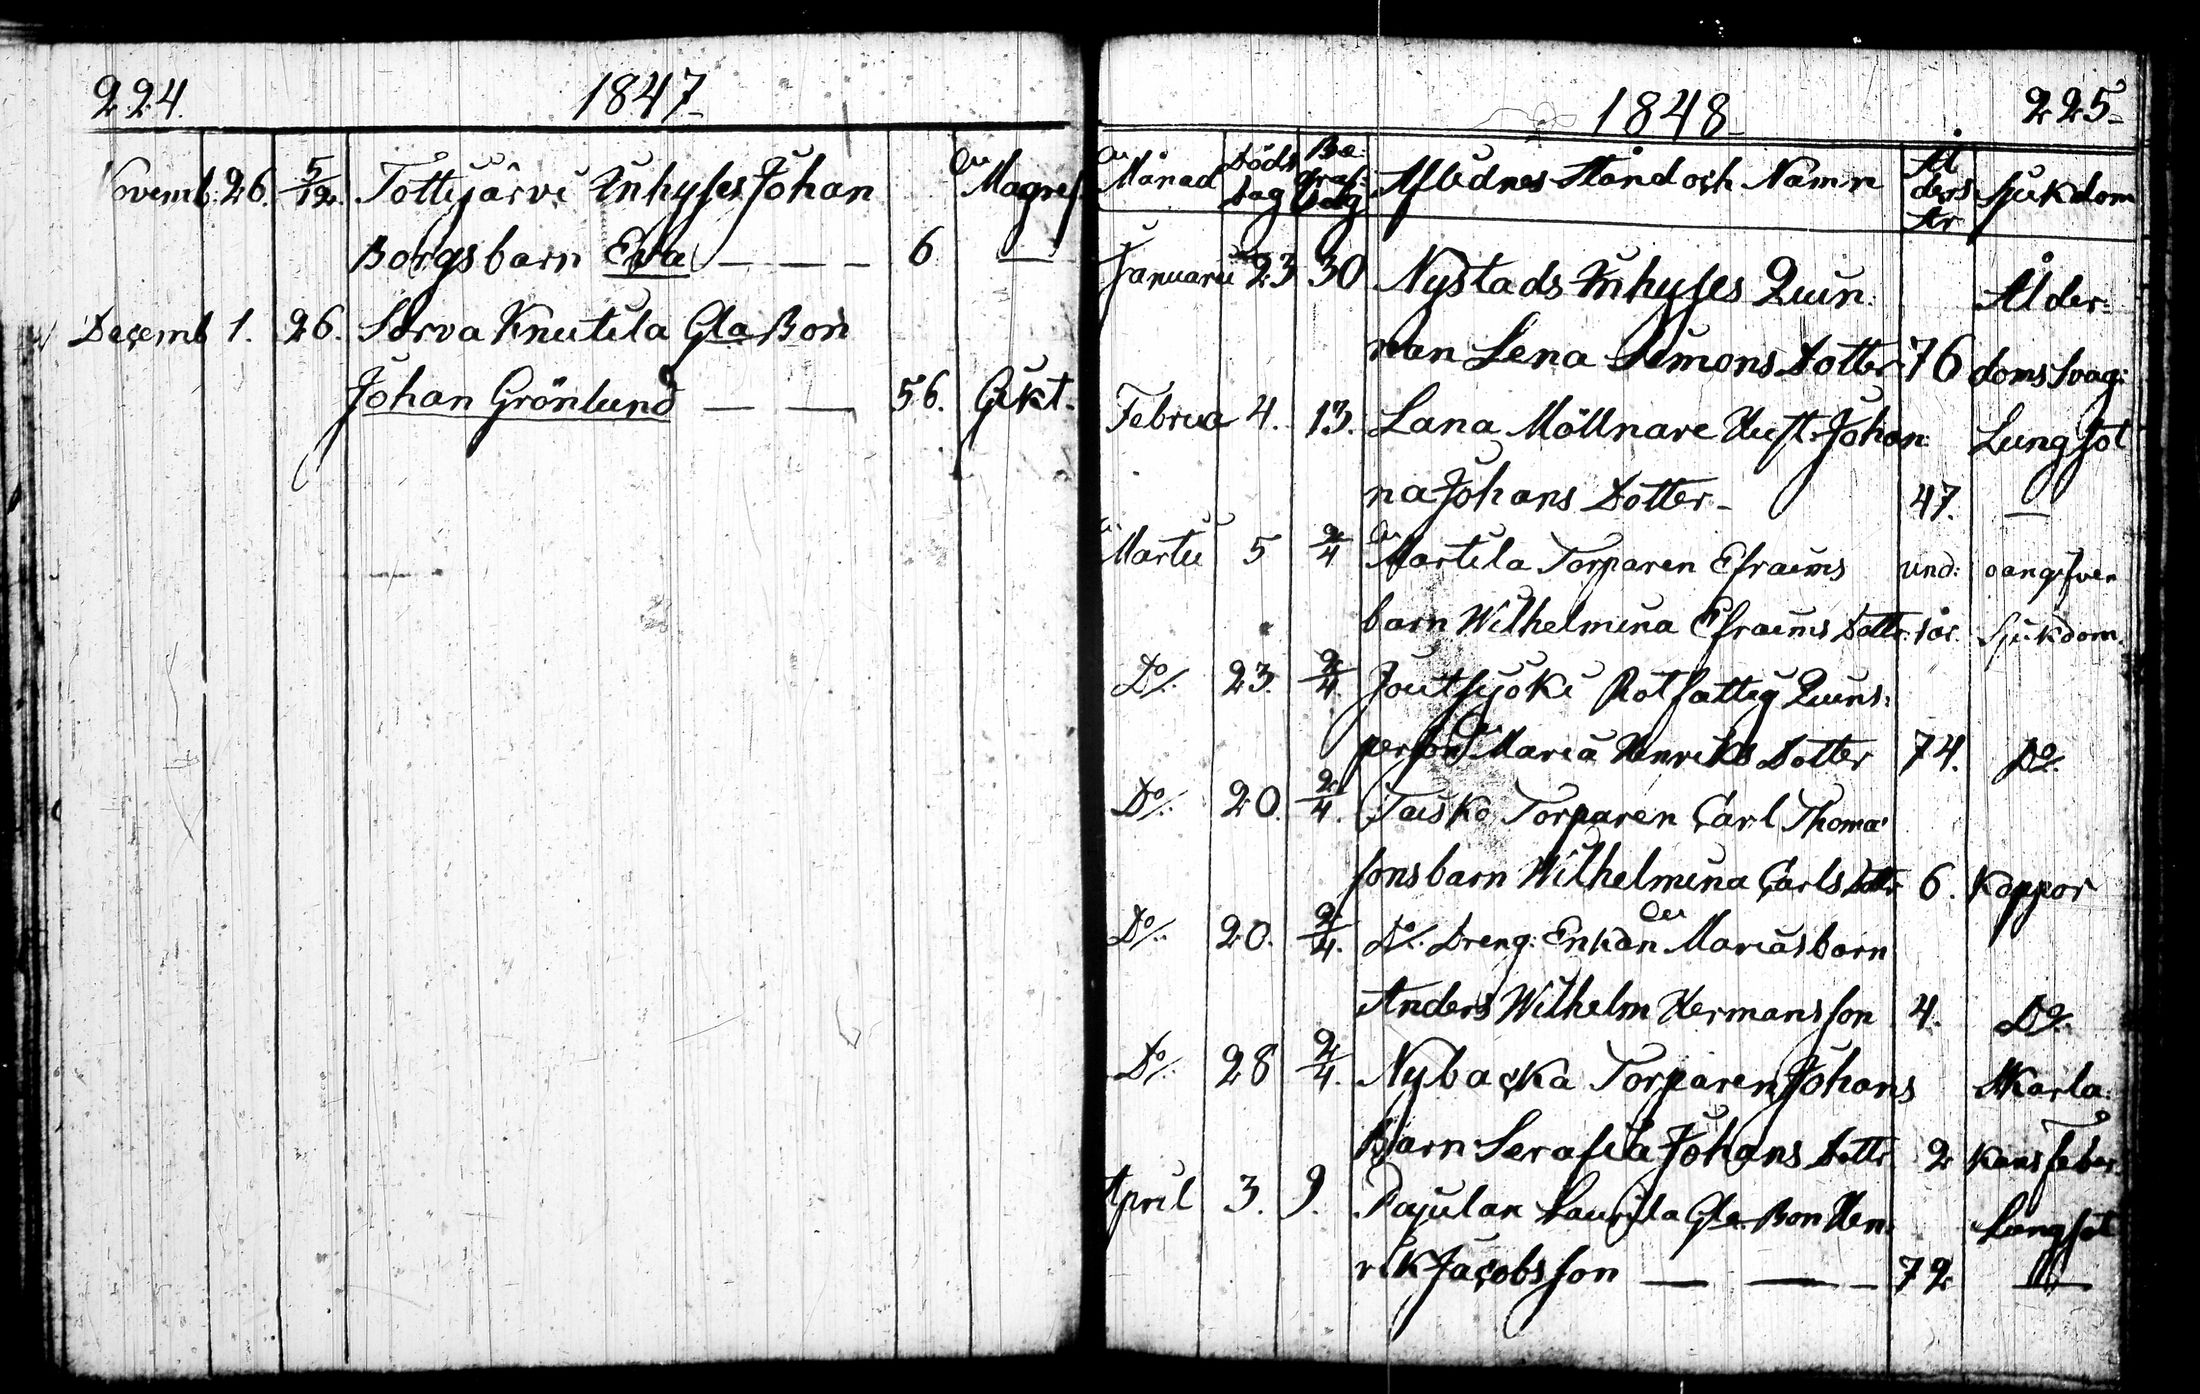 224. 1847
Novemb: 26. 5/12. Tottijärvi Inhyses Johan Magref
Borgs barn Eva — — — 6 —
Decemb 1. 26. Sorva Knutila Gla Bon
Johan Grönlund — — 56. Gikt.
1848 225
Månad Döds dag Be: graf: dag Aflidnes Stånd och Namn Ål ders År Sjukdom
Januarii 23 30 Nystads Inhyses Quin: Ålder:
nan Lena Simons Dotter 76 doms svag:
Februa 4. 13. Lana Möllnare Hust: Johan: Lungsot
na Johans Dotter 47. —
Martii 5 2/4 Martila Torparen Efraims und:
barn Wilhelmina Efraims Dottr: 1 år. Sjukdom.
Do/. 23. 2/4. Joutsijoki Rotfattig Quins:
person Maria Henriks Dotter 74. Do.
Do/. 20. 2/4. Taisko Torparen Carl Thoma
sons barn Wilhelmina Carls Dottr 6. Koppor
Do/. 20. 2/4. Do/. Dreng: Enkan Marias barn
Anders Wilhelm Hermansson 4. Do.
Do/. 28 2/4. Nybacka Torparen Johans Skarla:
Barn Serafia Johans Dottr 2 kans feber
April 3. 9. Pajulan Laurila Gla Bon Hen: Lungsot
rik Jacobsson — — — 72 —